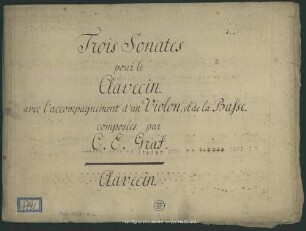 Trois Sonates
pour le
Clavecin.
avec l'accompagnement d'un Violon, et de la Basse.
composées par
C. E. Graf.
Clavecin.